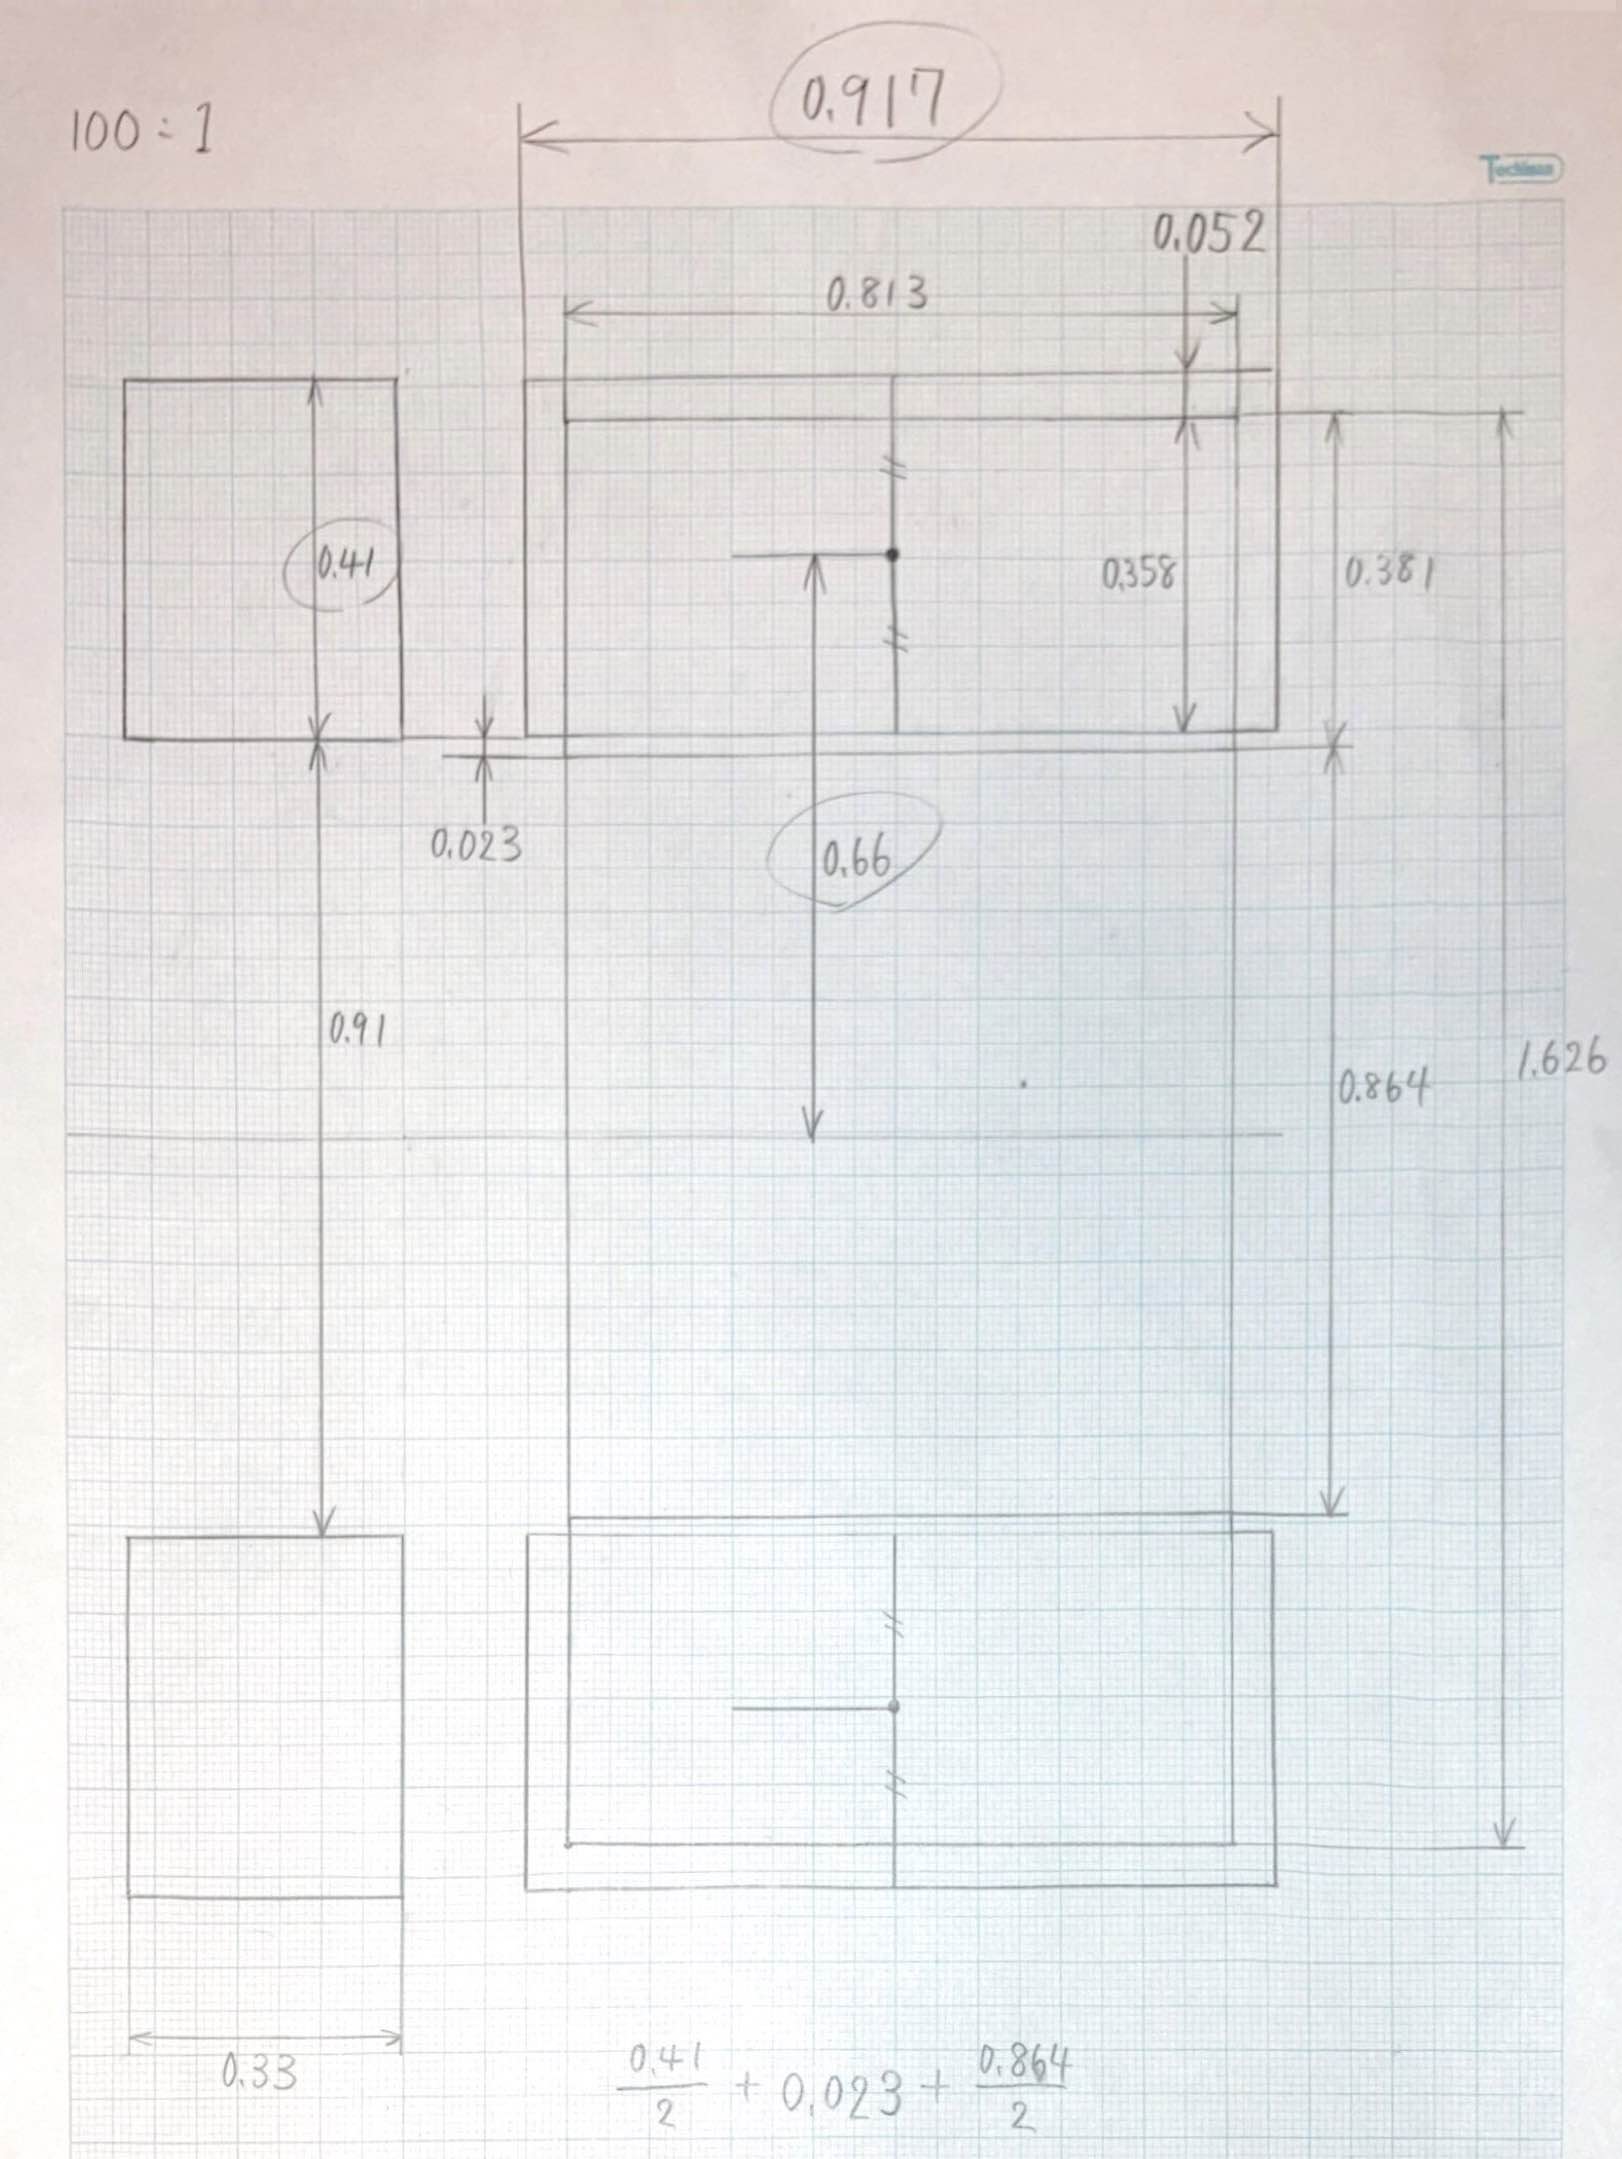 0.917
100:1
Tochiman
0.052
0.813
0.41
0.358
0.381
0.023
0.66
0.91
0.864
1.626
0.33
0.41/2 + 0.023 + 0.864/2